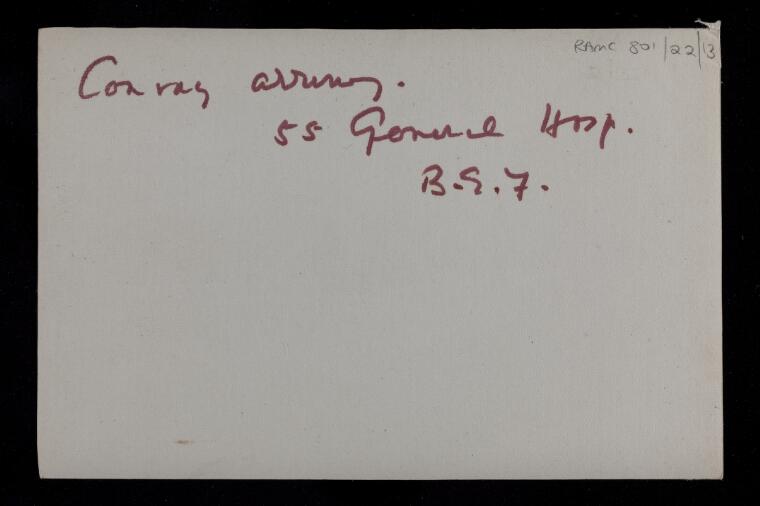 RAMC 801/22/13
Convoy arriving.
55 General Hosp.
B.E.F.